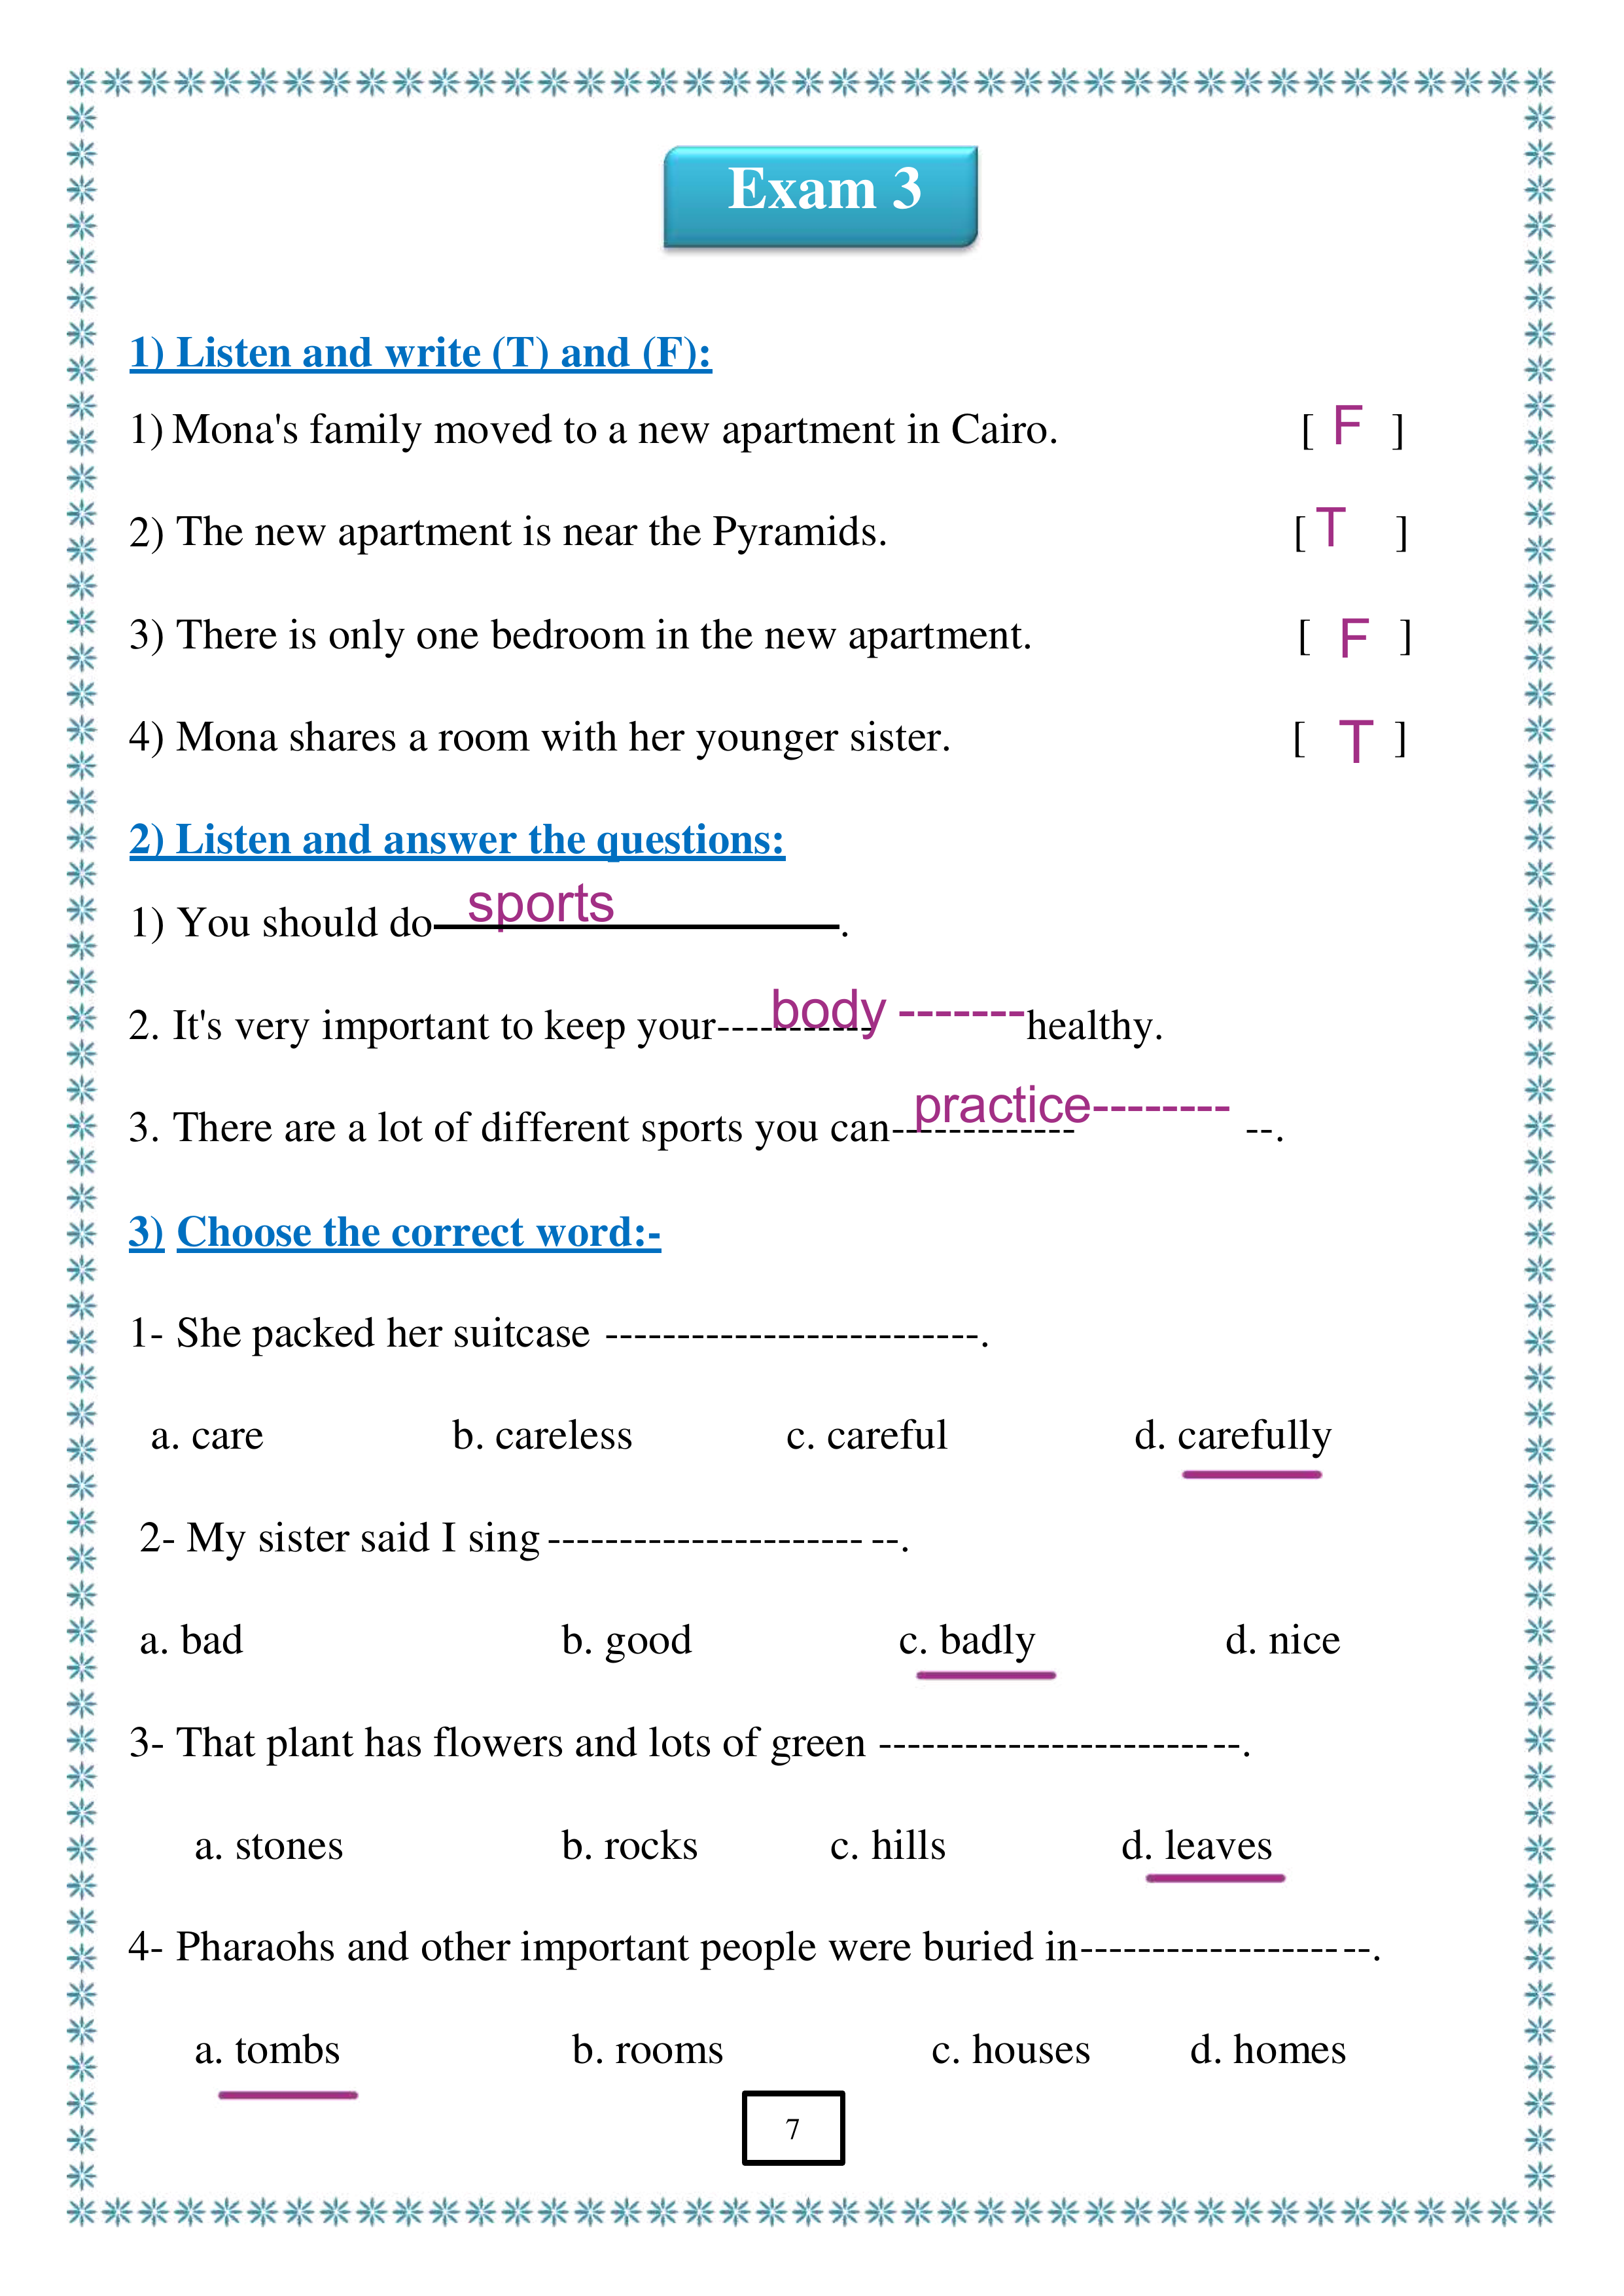 Exam 3
1) Listen and write (T) and (F):
1) Mona's family moved to a new apartment in Cairo. [ F ]
2) The new apartment is near the Pyramids. [ T ]
3) There is only one bedroom in the new apartment. [ F ]
4) Mona shares a room with her younger sister. [ T ]
2) Listen and answer the questions:
1) You should do sports.
2. It's very important to keep your----body-------healthy.
3. There are a lot of different sports you can--practice-------- --.
3) Choose the correct word:-
1- She packed her suitcase --------------------------.
a. care b. careless c. careful d. carefully
2- My sister said I sing ---------------------- --.
a. bad b. good c. badly d. nice
3- That plant has flowers and lots of green -------------------------.
a. stones b. rocks c. hills d. leaves
4- Pharaohs and other important people were buried in--------------------.
a. tombs b. rooms c. houses d. homes
7